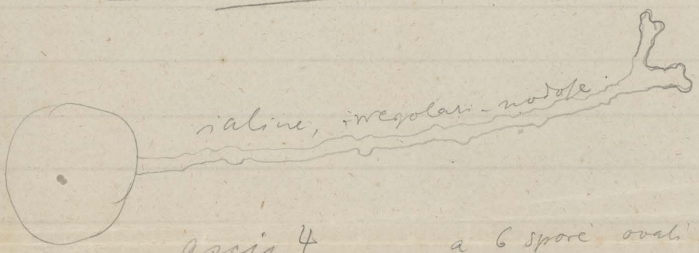 ialine, irregolari-nodose
4 a 6 spore ovali